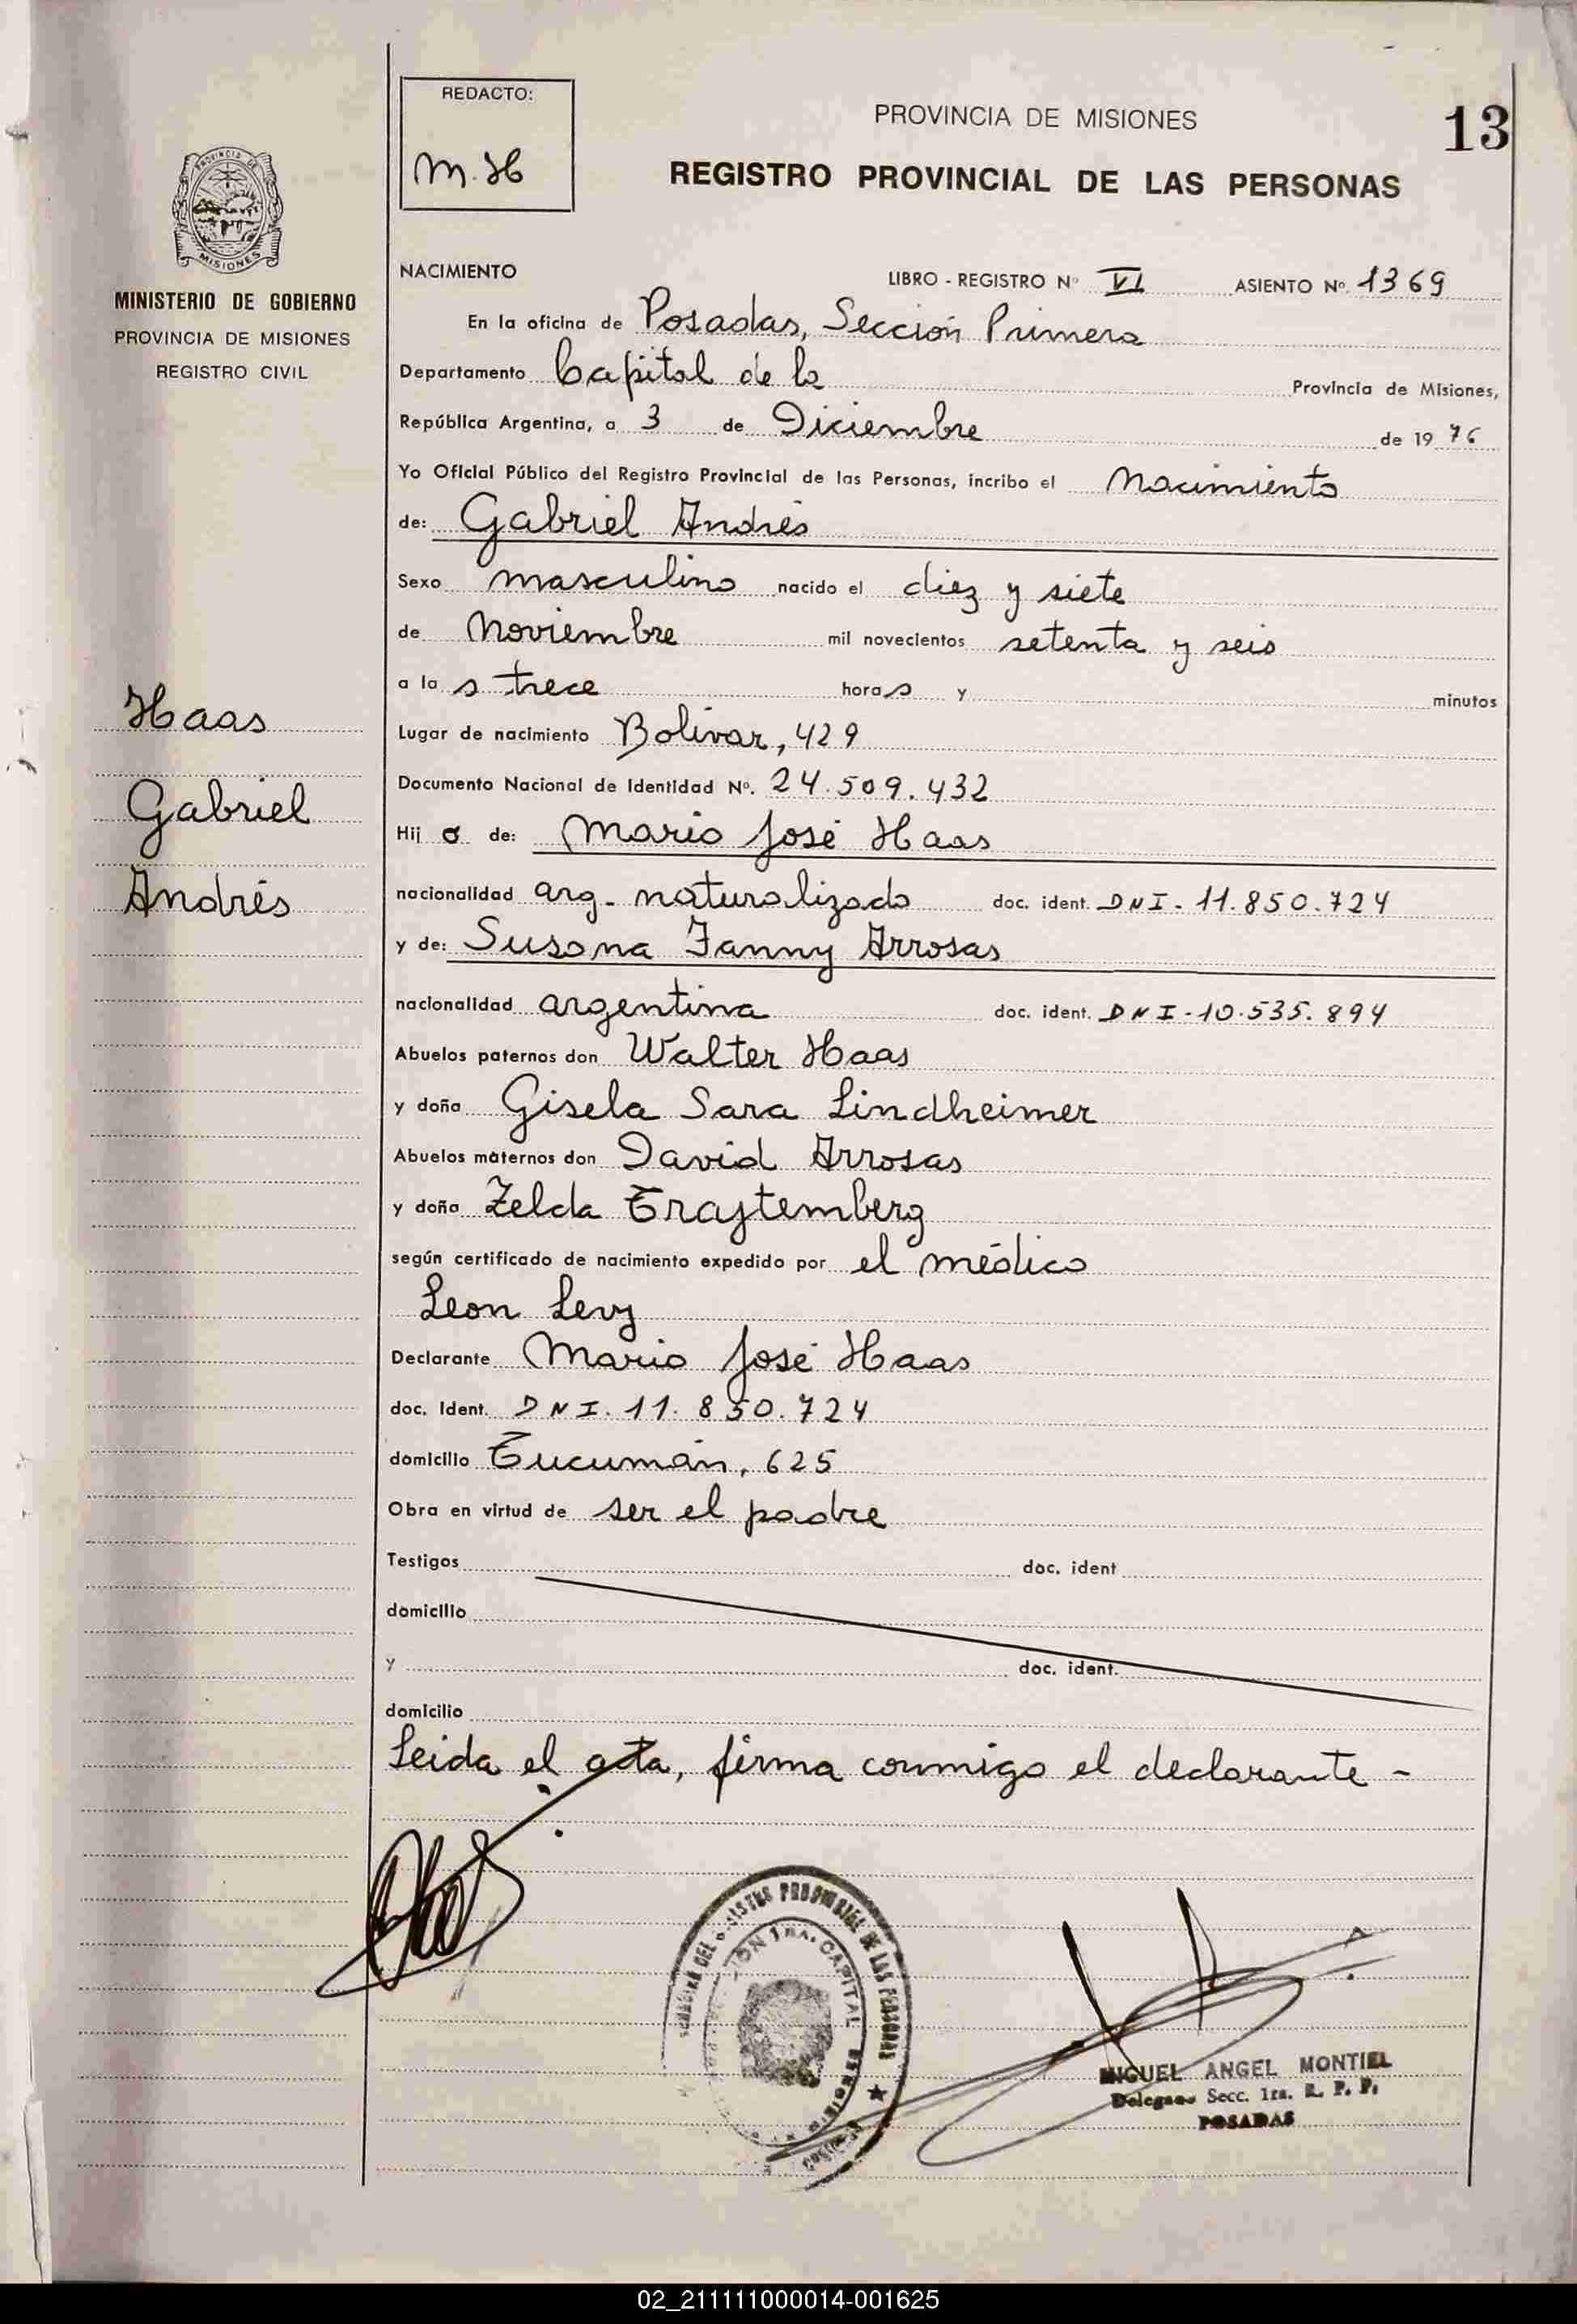 REDACTO:
M. H
PROVINCIA DE MISIONES
13
REGISTRO PROVINCIAL DE LAS PERSONAS
PROVINCIA DE
MISIONES
MINISTERIO DE GOBIERNO
PROVINCIA DE MISIONES
REGISTRO CIVIL
Haas
Gabriel
Andrés
NACIMIENTO LIBRO - REGISTRO Nº VI ASIENTO Nº. 1369
En la oficina de Posadas, Sección Primera
Departamento Capital de la Provincia de Misiones,
República Argentina, a 3 de Diciembre de 1976
Yo Oficial Público del Registro Provincial de las Personas, incribo el Nacimiento
de: Gabriel Andrés
Sexo masculino nacido el diez y siete
de Noviembre mil novecientos setenta y seis
a las trece horas y minutos
Lugar de nacimiento Bolívar, 429
Documento Nacional de Identidad Nº. 24.509.432
Hijo de: Mario José Haas
nacionalidad arg. naturalizado doc. ident. DNI- 11.850.724
y de: Susana Fanny Arrosas
nacionalidad argentina doc. ident. DNI-10.535.894
Abuelos paternos don Walter Haas
y doña Gisela Sara Lindheimer
Abuelos maternos don David Arrosas
y doña Zelda Trajtemberg
según certificado de nacimiento expedido por el médico
Leon Levy
Declarante Mario José Haas
doc. Ident. DNI. 11.850.724
domicilio Tucumán, 625
Obra en virtud de ser el padre
Testigos doc. ident
domicilio
y doc. ident.
domicilio
Leida el acta, firma conmigo el declarante -
PROVINCIAL DE LAS PERSONAS
1RA. CAPITAL
MIGUEL ANGEL MONTIEL
Delegado Secc. 1ra. R. P. P.
POSADAS
02_211111000014-001625